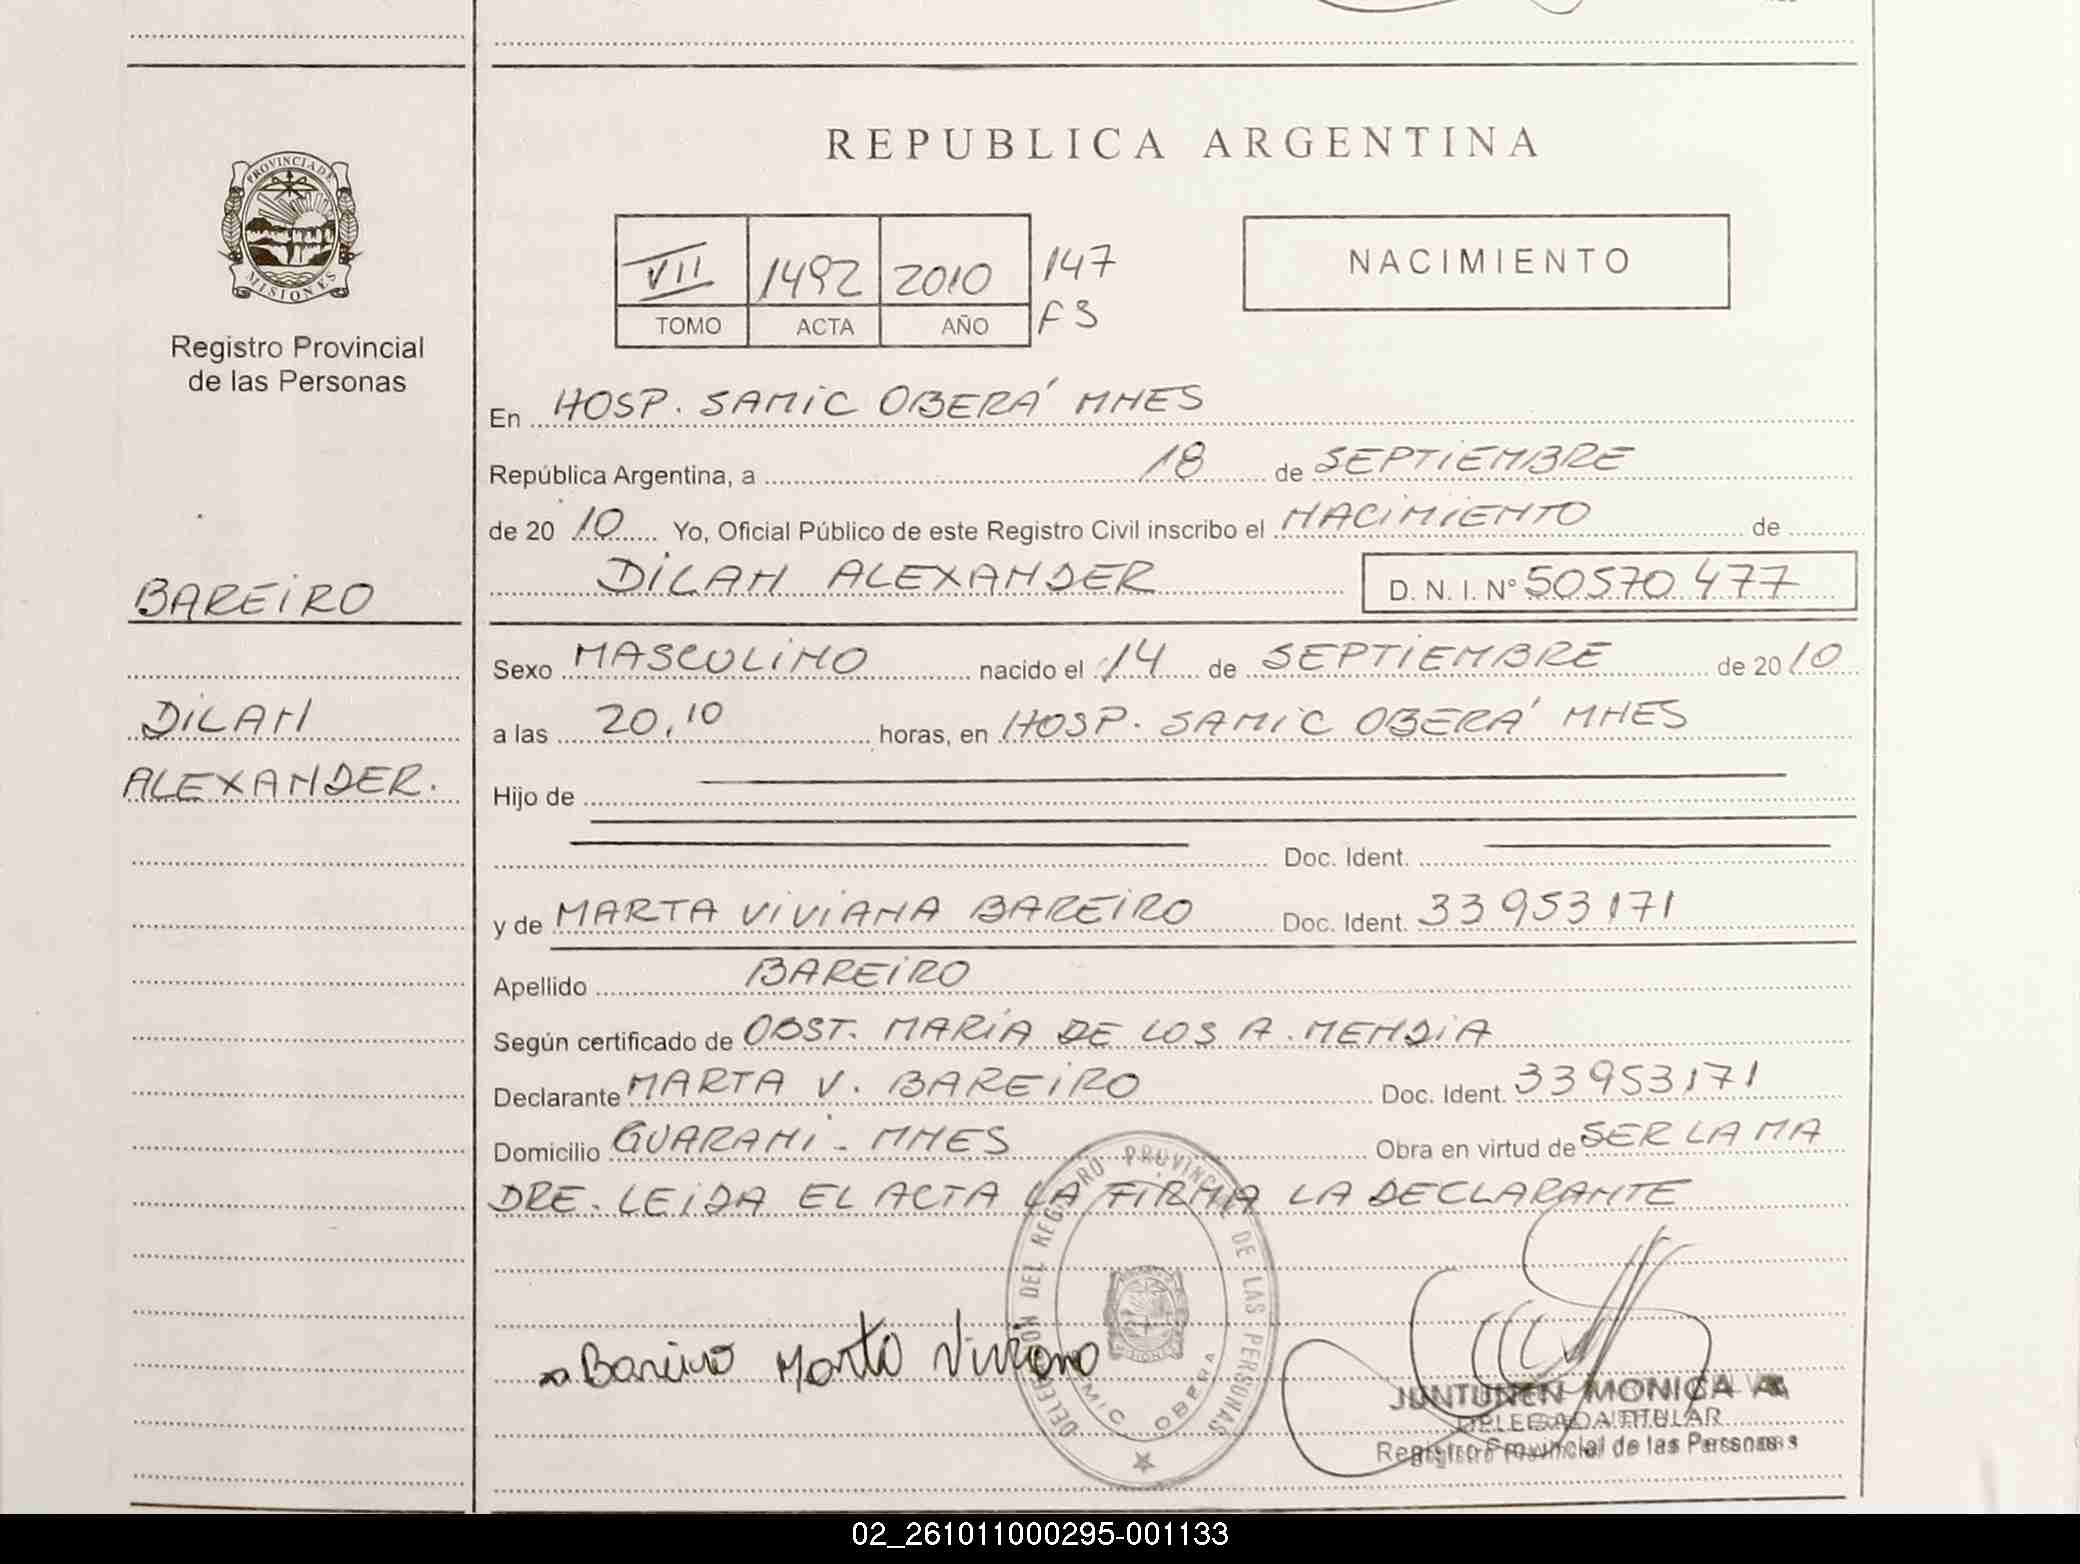 REPUBLICA ARGENTINA
PROVINCIA DE
MISIONES
Registro Provincial
de las Personas
VII 1492 2010 147
TOMO ACTA AÑO F 3
NACIMIENTO
En HOSP. SAMIC OBERÁ MNES
República Argentina, a 18 de SEPTIEMBRE
de 20 10 Yo, Oficial Público de este Registro Civil inscribo el NACIMIENTO de
DILAN ALEXANDER D. N. I. N° 50570477
BAREIRO
DILAN
ALEXANDER.
Sexo MASCULINO nacido el 14 de SEPTIEMBRE de 20 10
a las 20,10 horas, en HOSP. SAMIC OBERÁ MNES
Hijo de
Doc. Ident.
y de MARTA VIVIANA BAREIRO Doc. Ident. 33953171
Apellido BAREIRO
Según certificado de OBST. MARIA DE LOS A. MENDIA
Declarante MARTA V. BAREIRO Doc. Ident. 33953171
Domicilio GUARANI - MNES Obra en virtud de SER LA MA
DRE. LEIDA EL ACTA LA FIRMA LA DECLARANTE
DELEGACION DEL REGISTRO PROVINCIAL DE LAS PERSONAS
OBERA
MISIONES
Bareiro Marta Viviana
JUNTUNEN MONICA A.
DELEGADA TITULAR
Registro Provincial de las Personas
02_261011000295-001133